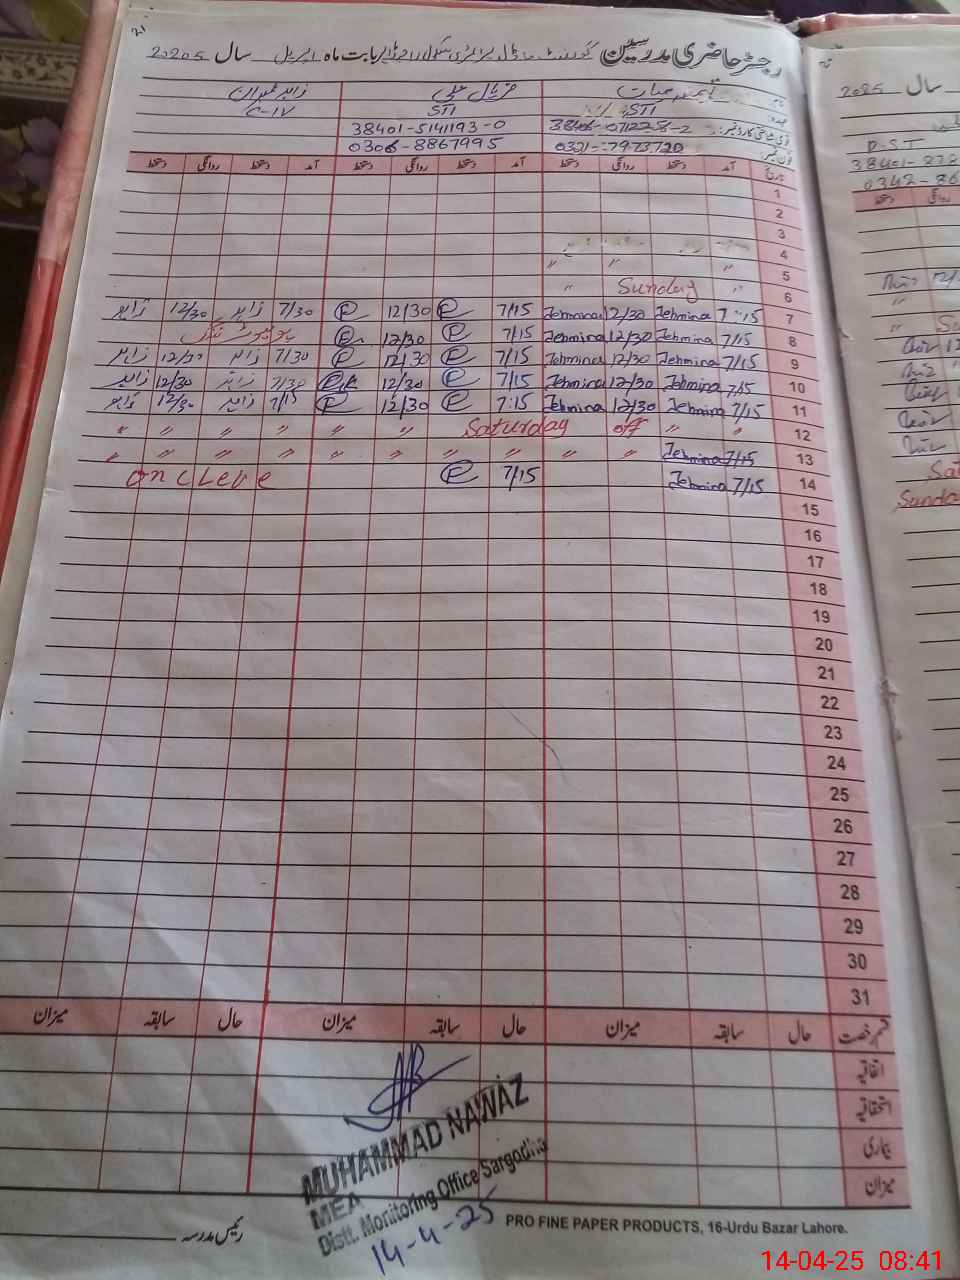 21
رجسٹر حاضری مدرسین گورنمنٹ ماڈل پرائمری سکول بابت ماہ اپریل سال 20205
زاہد عمران
C-IV STI STI
38401-5141193-0
0306-8867995
دستخط روانگی دستخط آمد دستخط روانگی دستخط آمد دستخط روانگی دستخط آمد تاریخ
1
2
3
4
" " " 5
" Sunday " 6
زاہد 12/30 زاہد 7/30 12/30 7/15 Tehmina 12/30 Tehmina 7:15 7
12/30 7/15 Tehmina 12/30 Tehmina 7/15 8
زاہد 12/30 زاہد 7/30 12/30 7/15 Tehmina 12/30 Tehmina 7/15 9
زاہد 12/30 زاہد 7/30 12/30 7/15 Tehmina 12/30 Tehmina 7/15 10
زاہد 12/30 زاہد 7/15 12/30 7:15 Tehmina 12/30 Tehmina 7/15 11
" " " " " " Saturday off " " 12
" " " " " " " " " " Tehmina 7/15 13
on c Leve 7/15 Tehmina 7/15 14
15
16
17
18
19
20
21
22
23
24
25
26
27
28
29
30
31
میزان سابقہ حال میزان سابقہ حال میزان سابقہ حال قسم رخصت
اتفاقیہ
استحقاقیہ
بیماری
میزان
MUHAMMAD NAWAZ
MEA
Distt. Monitoring Office Sargodha
14-4-25
رئیس مدرسہ
PRO FINE PAPER PRODUCTS, 16-Urdu Bazar Lahore.
سال 2025
D-ST
38401-872
0342-86
دستخط روانگی
14-04-25 08:41